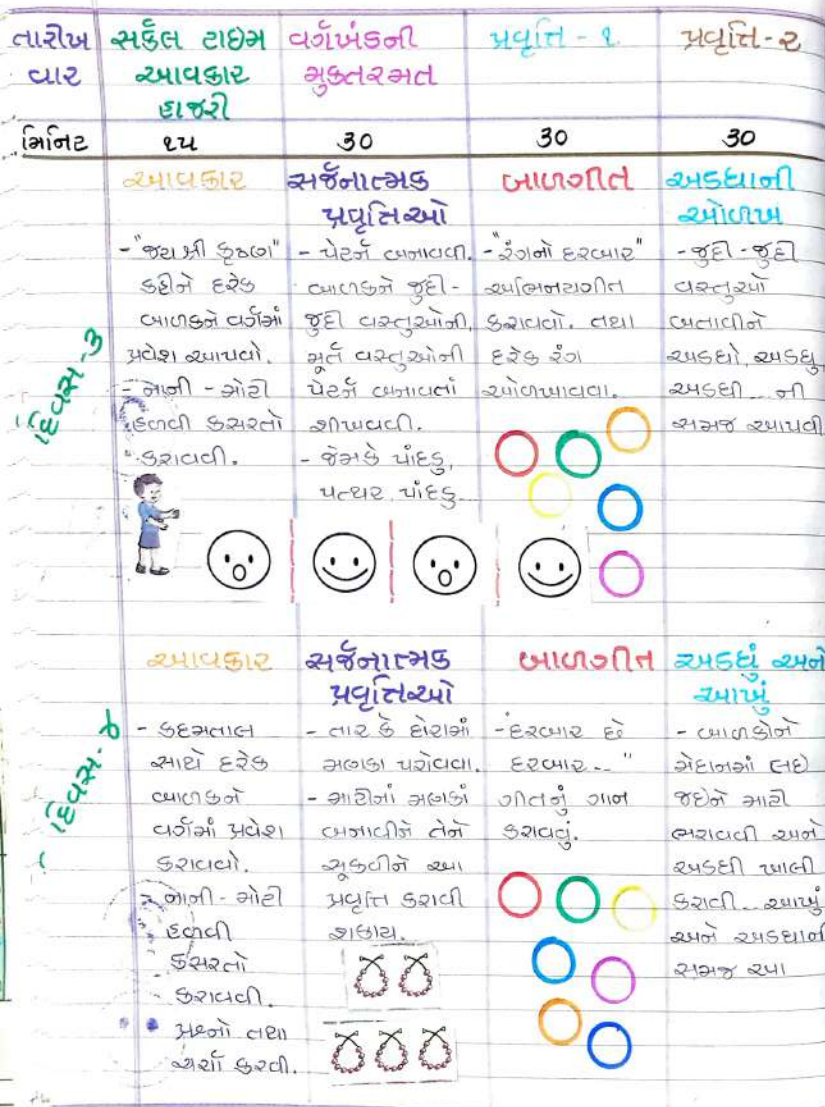 તારીખ વાર
સર્કલ ટાઇમ આવકાર હાજરી
વર્ગખંડની મુક્તરમત
પ્રવૃત્તિ - ૧
પ્રવૃત્તિ - ૨
મિનિટ ૧૫ ૩૦ ૩૦ ૩૦
દિવસ-૩
આવકાર
- "જય શ્રી કૃષ્ણ"
કહીને દરેક
બાળકને વર્ગમાં
પ્રવેશ આપવો.
- નાની - મોટી
હળવી કસરતો
કરાવવી.
સર્જનાત્મક
પ્રવૃત્તિઓ
- પેટર્ન બનાવવી.
બાળકને જુદી-
જુદી વસ્તુઓની,
મૂર્ત વસ્તુઓની
પેટર્ન બનાવતાં
શીખવવી.
- જેમકે પાંદડુ,
પત્થર, પાંદડુ...
બાળગીત
- "રંગનો દરબાર"
અભિનયગીત
કરાવવો. તથા
દરેક રંગ
ઓળખાવવા.
અડધાની
ઓળખ
- જુદી - જુદી
વસ્તુઓ
બતાવીને
અડધો, અડધુ,
અડધી... ની
સમજ આપવી
દિવસ-૪
આવકાર
- કદમતાલ
સાથે દરેક
બાળકને
વર્ગમાં પ્રવેશ
કરાવવો.
- નાની - મોટી
હળવી
કસરતો
કરાવવી.
પ્રશ્નો તથા
ચર્ચા કરવી.
સર્જનાત્મક
પ્રવૃત્તિઓ
- તાર કે દોરામાં
મણકા પરોવવા.
- માટીનાં મણકાં
બનાવીને તેને
સૂકવીને આ
પ્રવૃત્તિ કરાવી
શકાય.
બાળગીત
- "દરબાર છે
દરબાર... "
ગીતનું ગાન
કરાવવું.
અડધું અને
આખું
- બાળકોને
મેદાનમાં લઇ
જઇને માટી
ભરાવવી અને
અડધી ખાલી
કરાવી... આખું
અને અડધાની
સમજ આપ